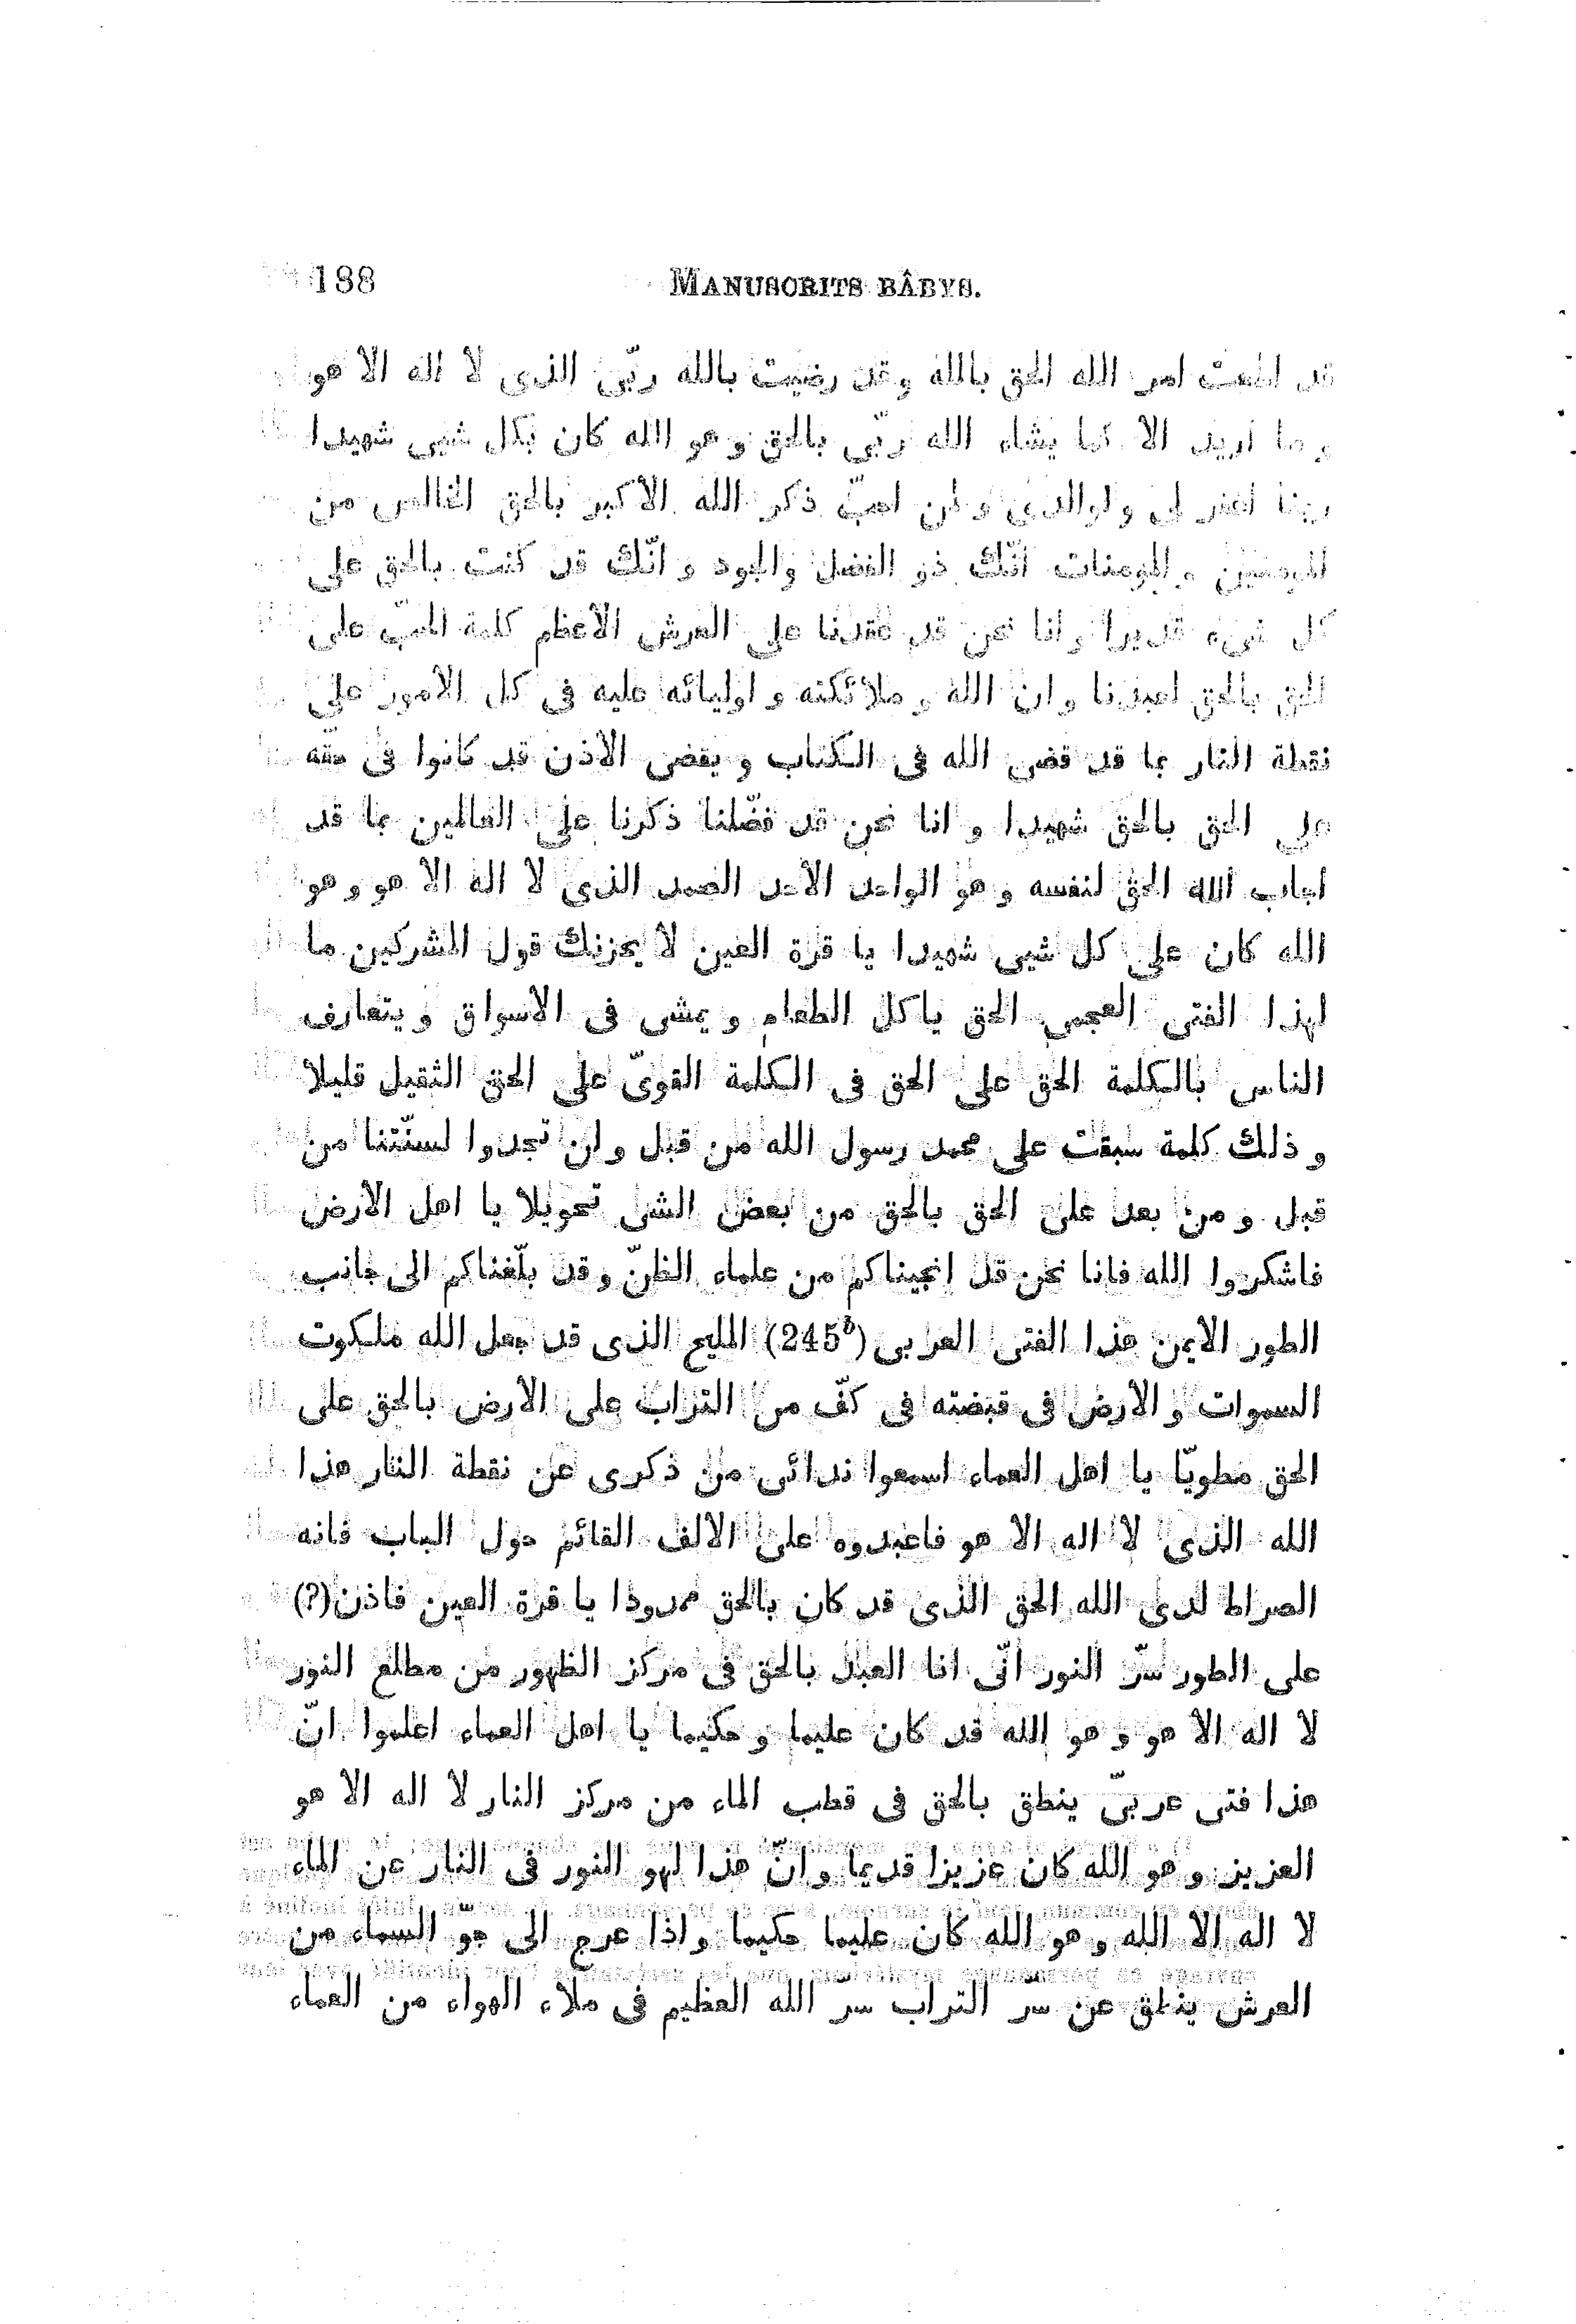 188 MANUSCRITS BÂBYS.
قد اطعت امر الله الحق بالله وقد رضيت بالله ربّى الذى لا اله الا هو
و ما اريد الا كما يشاء الله ربّى بالحق و هو الله كان بكل شيى شهيدا
ربنا اغفر لى و لوالدى و لمن احبّ ذكر الله الاكبر بالحق الخالص من
المومنين و المومنات انّك ذو الفضل والجود و انّك قد كنت بالحق على
كل شىء قديرا و انا نحن قد عقدنا على العرش الاعظم كلمة الحبّ على
الحق بالحق لعبدنا و ان الله و ملائكته و اوليائه عليه فى كل الامور على
نقطة النار بما قد قضى الله فى الكتاب و يقضى الاذن قد كانوا فى حقّه
على الحق بالحق شهيدا و انا نحن قد فضّلنا ذكرنا على العالمين بما قد
اجاب الله الحق لنفسه و هو الواحد الاحد الصمد الذى لا اله الا هو و هو
الله كان على كل شيى شهيدا يا قرة العين لا يحزنك قول المشركين ما
لهذا الفتى العجمى الحق ياكل الطعام و يمشى فى الاسواق و يتعارف
الناس بالكلمة الحق على الحق فى الكلمة القوىّ على الحق الثقيل قليلا
و ذلك كلمة سبقت على محمد رسول الله من قبل و لن تجدوا لسنّتنا من
قبل و من بعد على الحق بالحق من بعض الشى تحويلا يا اهل الارض
فاشكروا الله فانا نحن قد انجيناكم من علماء الظنّ و قد بلّغناكم الى جانب
الطور الايمن هذا الفتى العربى (245b) المليح الذى قد جعل الله ملكوت
السموات و الارض فى قبضته فى كفّ من التراب على الارض بالحق على
الحق مطويّا يا اهل العماء اسمعوا ندائى من ذكرى عن نقطة النار هذا
الله الذى لا اله الا هو فاعبدوه على الالف القائم حول الباب فانه
الصراط لدى الله الحق الذى قد كان بالحق ممدودا يا قرة العين فاذن(?)
على الطور سرّ النور انّى انا العبد بالحق فى مركز الظهور من مطلع النور
لا اله الا هو و هو الله قد كان عليما و حكيما يا اهل العماء اعلموا انّ
هذا فتى عربىّ ينطق بالحق فى قطب الماء من مركز النار لا اله الا هو
العزيز و هو الله كان عزيزا قديما و انّ هذا لهو النور فى النار عن الماء
لا اله الا الله و هو الله كان عليما حكيما و اذا عرج الى جو السماء من
العرش ينطق عن سر التراب سر الله العظيم فى ملاء الهواء من العماء